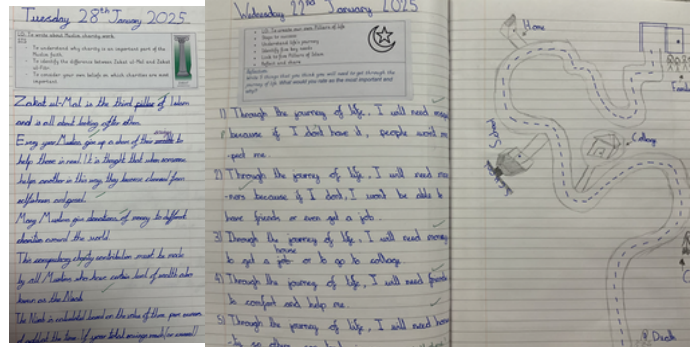 Tuesday 28th January 2025
LO: To write about Muslim charity work.
To understand why charity is an important part of the Muslim faith.
To identify the difference between Zakat ul-Mal and Zakat ul-Fitr.
To consider your own beliefs on which charities are most important.
Zakat ul-Mal is the third pillar of Islam
and is all about looking after other.
Every year Muslims give up a share of their wealth to
help those in need. It is thought that when someone
helps another in this way, they become cleansed from
selfishness and greed.
Many Muslims give donations of money to different
charities around the world.
This compulsory charity contribution must be made
by all Muslims who have certain level of wealth also
known as the Nisab.
The Nisab is calculated based on the value of three
Wednesday 22nd January 2025
LO: To create our own Pillars of life
Steps to success
Understand life's journey
Identify five key needs
Link to five Pillars of Islam
Reflect and share
Reflection:
Write 5 things that you think you will need to get through the
journey of life. What would you rate as the most important and
why?
1) Through the journey of life, I will need
because if I don't have it, people won't
-pect me.
2) Through the journey of life, I will need ma
-ners because if I dont, I won't be able to
have friends or even get a job.
3) Through the journey of life, I will need money
to get a home or to go to collage.
4) Through the journey of life, I will need friends
to comfort and help me.
5) Through the journey of life, I will need
Home
School
College
Death